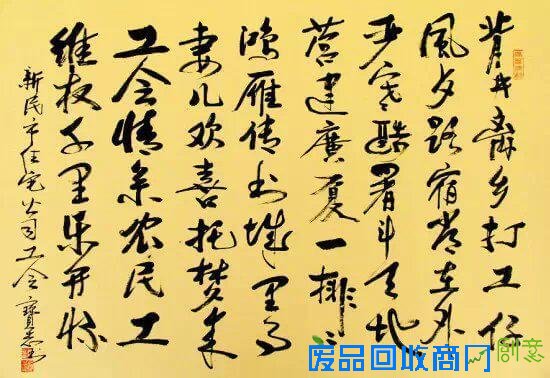 背井离乡打工仔
风夕路宿常在外
严寒酷署斗天地
营建廣夏一排排
鸿雁传书城里事
妻儿欢喜托梦来
工会情系农民工
维权千里乐开怀
新民市住宅公司工会
废品回收商网
创意